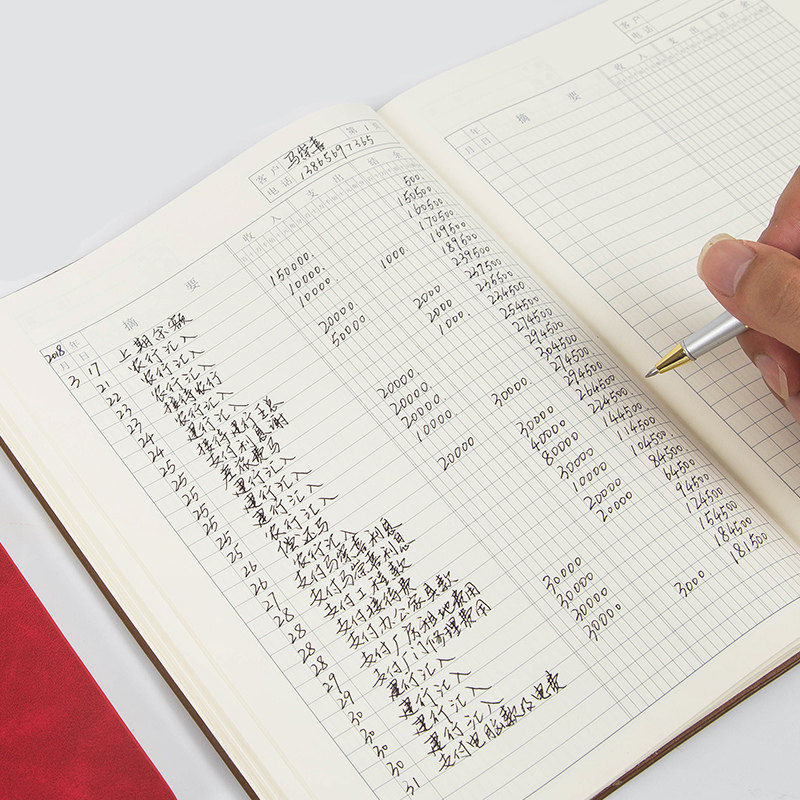 客户 马荣喜 第 1 页
电话 13865697365
2018 年 摘 要 收 入 支 出 结 余
月 日
3 17 上期余额
21 农行汇入
22 农行汇入
23 接待农行
23 农行汇入
24 建行汇入
24 接待建行
25 支付利息
25 差旅费
25 建行汇入
25 建行汇入
25 农行汇入
26 偿还马
26 农行汇入
27 支付马荣喜利息
28 支付马荣喜利息
28 支付工程款
28 支付接待费
28 支付办公家具款
29 支付厂房租地费用
29 支付门修理费用
30 建行汇入
30 建行汇入
30 建行汇入
30 建行汇入
31 支付电脑款及电费
150000.
10000.
10000.
20000.
50000.
20000
20000
20000
10000
20000
30000
30000
30000
30000
1000.
2000
2000
1000.
30000
30000
40000
80000
30000
10000
20000
20000
3000
500.
150500
160500
170500
169500
189500
239500
237500
235500
234500
254500
274500
294500
304500
274500
294500
264500
224500
144500
114500
104500
84500
64500
94500
124500
154500
184500
181500
客户
电话
年 摘 要 收 入 支 出 结 余
月 日